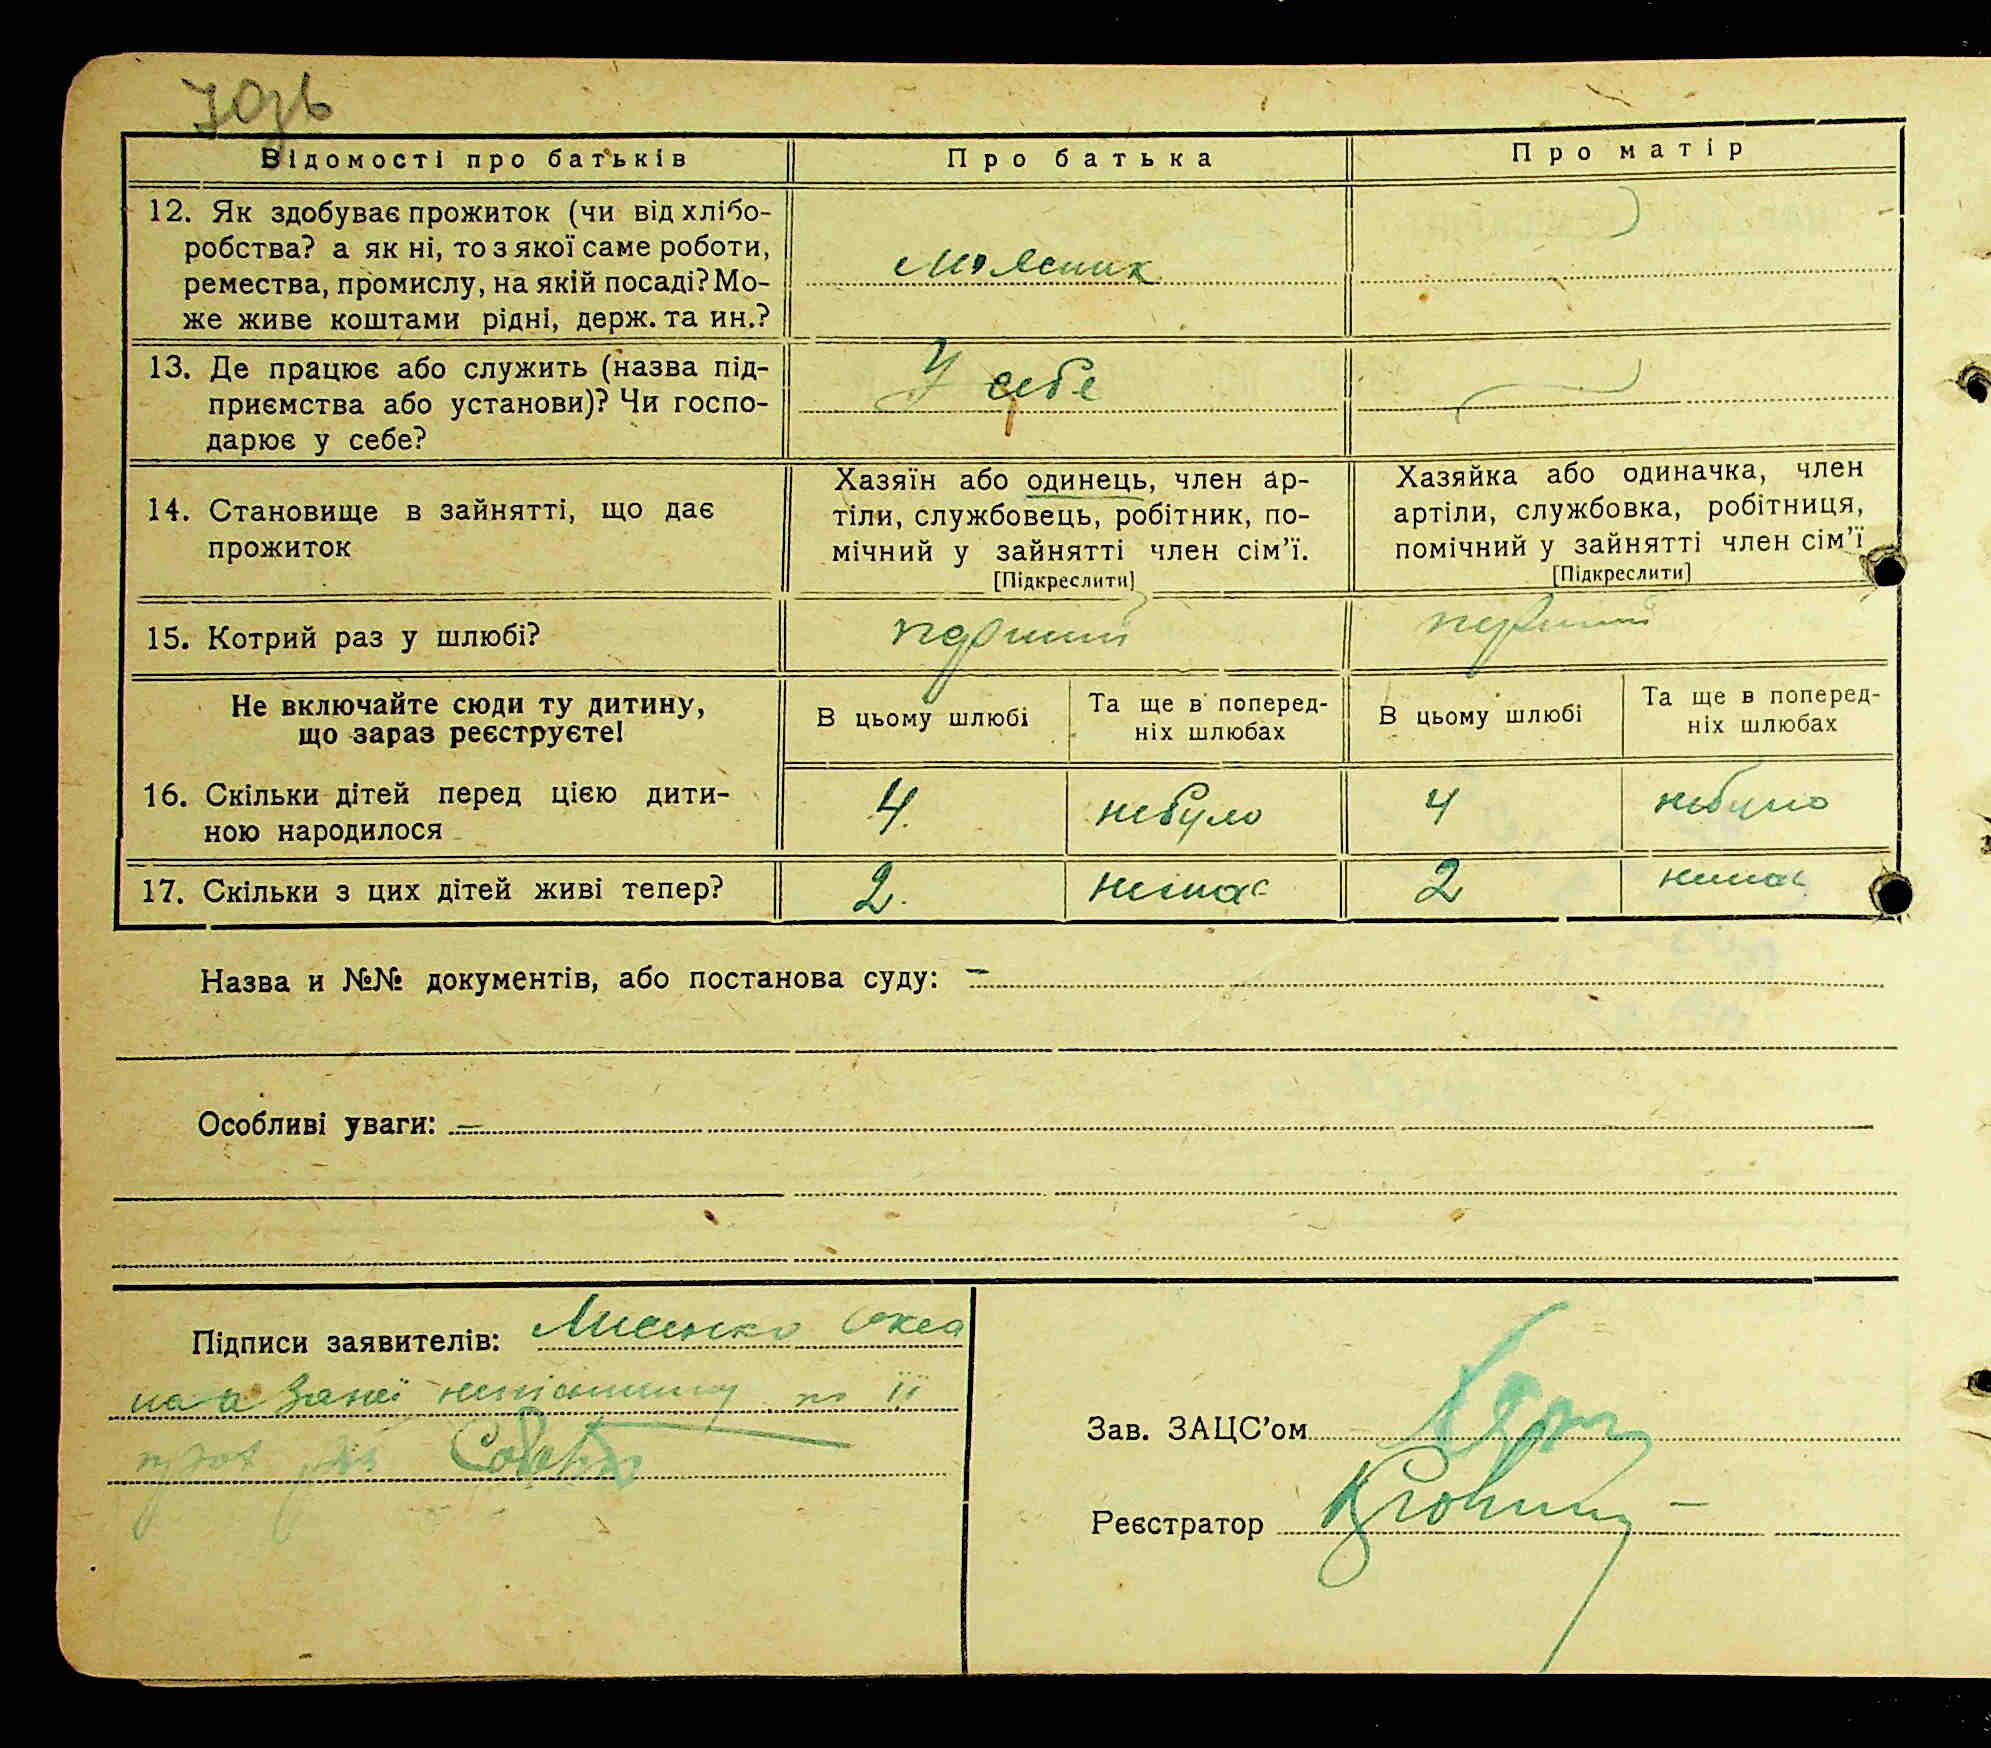 Відомості про батьків
Про батька
Про матір
12. Як здобуває прожиток (чи від хлібо-
робства? а як ні, то з якої саме роботи,
ремества, промислу, на якій посаді? Мо-
же живе коштами рідні, держ. та ин.?
Мясник
13. Де працює або служить (назва під-
приємства або установи)? Чи госпо-
дарює у себе?
У себе
14. Становище в зайнятті, що дає
прожиток
Хазяїн або одинець, член ар-
тіли, службовець, робітник, по-
мічний у зайнятті член сім'ї.
[Підкреслити]
Хазяйка або одиначка, член
артіли, службовка, робітниця,
помічний у зайнятті член сім'ї
[Підкреслити]
15. Котрий раз у шлюбі?
перший
перший
Не включайте сюди ту дитину,
що зараз реєструєте!
В цьому шлюбі
Та ще в поперед-
ніх шлюбах
В цьому шлюбі
Та ще в поперед-
ніх шлюбах
16. Скільки дітей перед цією дити-
ною народилося
4.
небуло
4
небуло
17. Скільки з цих дітей живі тепер?
2.
немає
2
немає
Назва и №№ документів, або постанова суду: –
Особливі уваги: –
Підписи заявителів:
по її
Зав. ЗАЦС'ом
Реєстратор